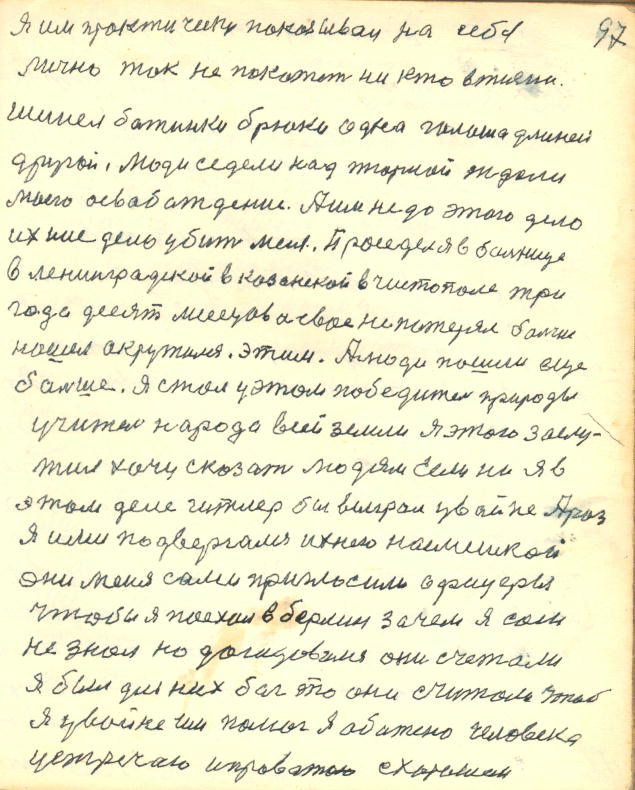 Я им практически показывал на себя 97
лично так не покажет никто в жизни.
Шинел батинки брюки одна галоша длиней
другой. Люди седели над тюрмой ждали
моего освабаждение. А им не до этого дело
их ине дело убит меня. Проседел я в балнице
в ленинградской в казанской в чистополе три
года десят месецов а свое непотерял балше
нашел окружил. этим. А люди пошли еще
балше. Я стал у этом победител природы
учител народа всей земли я этого заслу-
жил хочу сказат людям Если ни я в
этом деле гитлер бы выграл у вайне Араз
Я ими подвергался ихнею насмешкой
они меня сами пригласили офицеры
чтобы я поехал в берлин зачем я сам
не знал но догадовался они счетали
я был для них бог то они считали чтоб
я у вайне им помог Я абажено человека
устречаю и проважаю